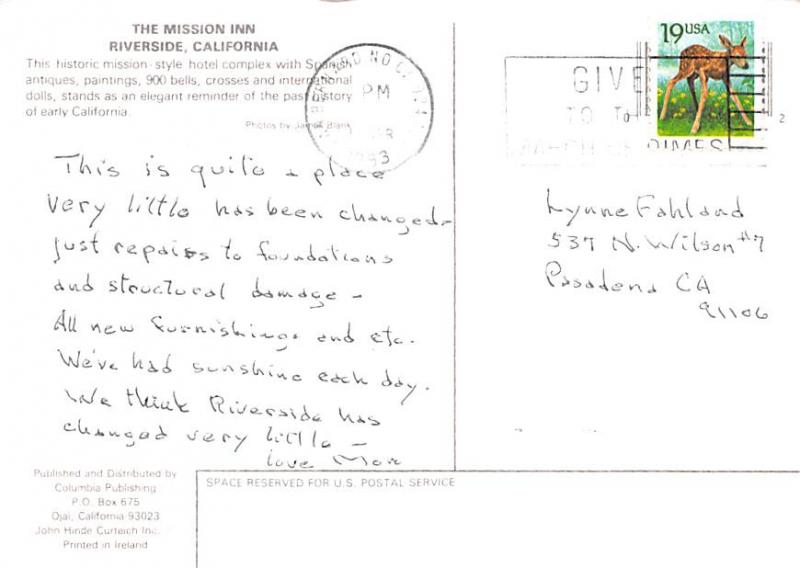 THE MISSION INN
RIVERSIDE, CALIFORNIA
This historic mission-style hotel complex with Spanish
antiques, paintings, 900 bells, crosses and international
dolls, stands as an elegant reminder of the past history
of early California.
Photos by James Blank
This is quite a place
very little has been changed-
just repairs to foundations
and structural damage -
All new furnishings and etc.
We've had sunshine each day.
We think Riverside has
changed very little -
love Mom
Published and Distributed by
Columbia Publishing
P.O. Box 675
Ojai, California 93023
John Hinde Curteich Inc.
Printed in Ireland
19 USA
PM
1993
GIVE
TO
MARCH OF DIMES
2
Lynne Fahland
537 N. Wilson #7
Pasadena CA
91106
SPACE RESERVED FOR U.S. POSTAL SERVICE